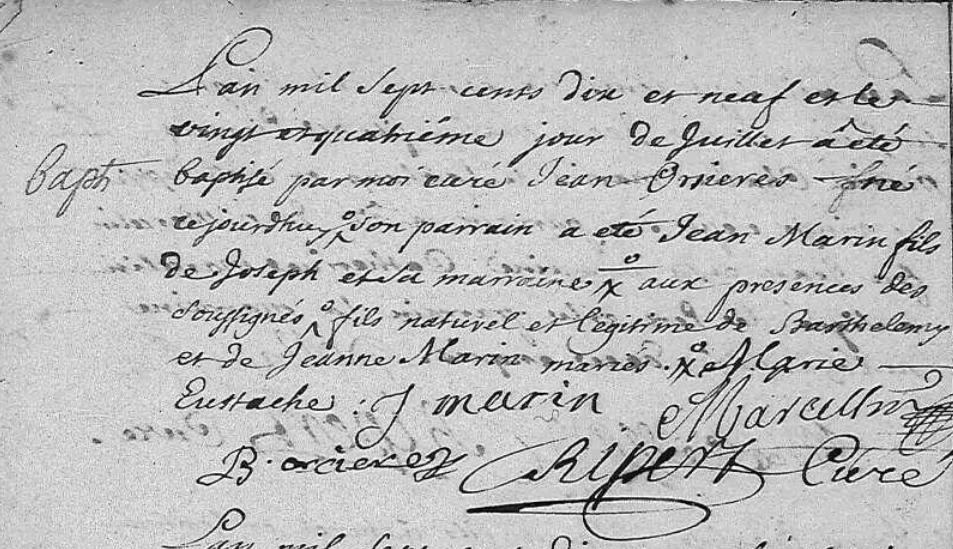 L'an mil sept cents dix et neuf et le
vingt et quatriéme jour de Juillet â été
baptisé par moi curé Jean Orsieres né
cejourdhuy son parrain a eté Jean Marin fils
de Joseph et sa marraine aux presences des
soussignés fils naturel et legitime de Barthelemy
et de Jeanne Marin mariés. Marie
Eustache : J marin Marcellin
Baph
B. orcieres Ripert Curé
L'an mil sept